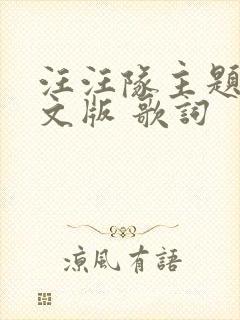 汪汪隊主題
文版 歌詞
涼風有語